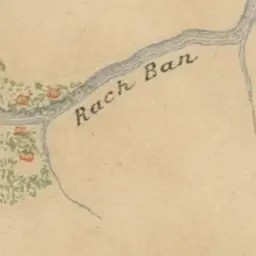 Rach Ban